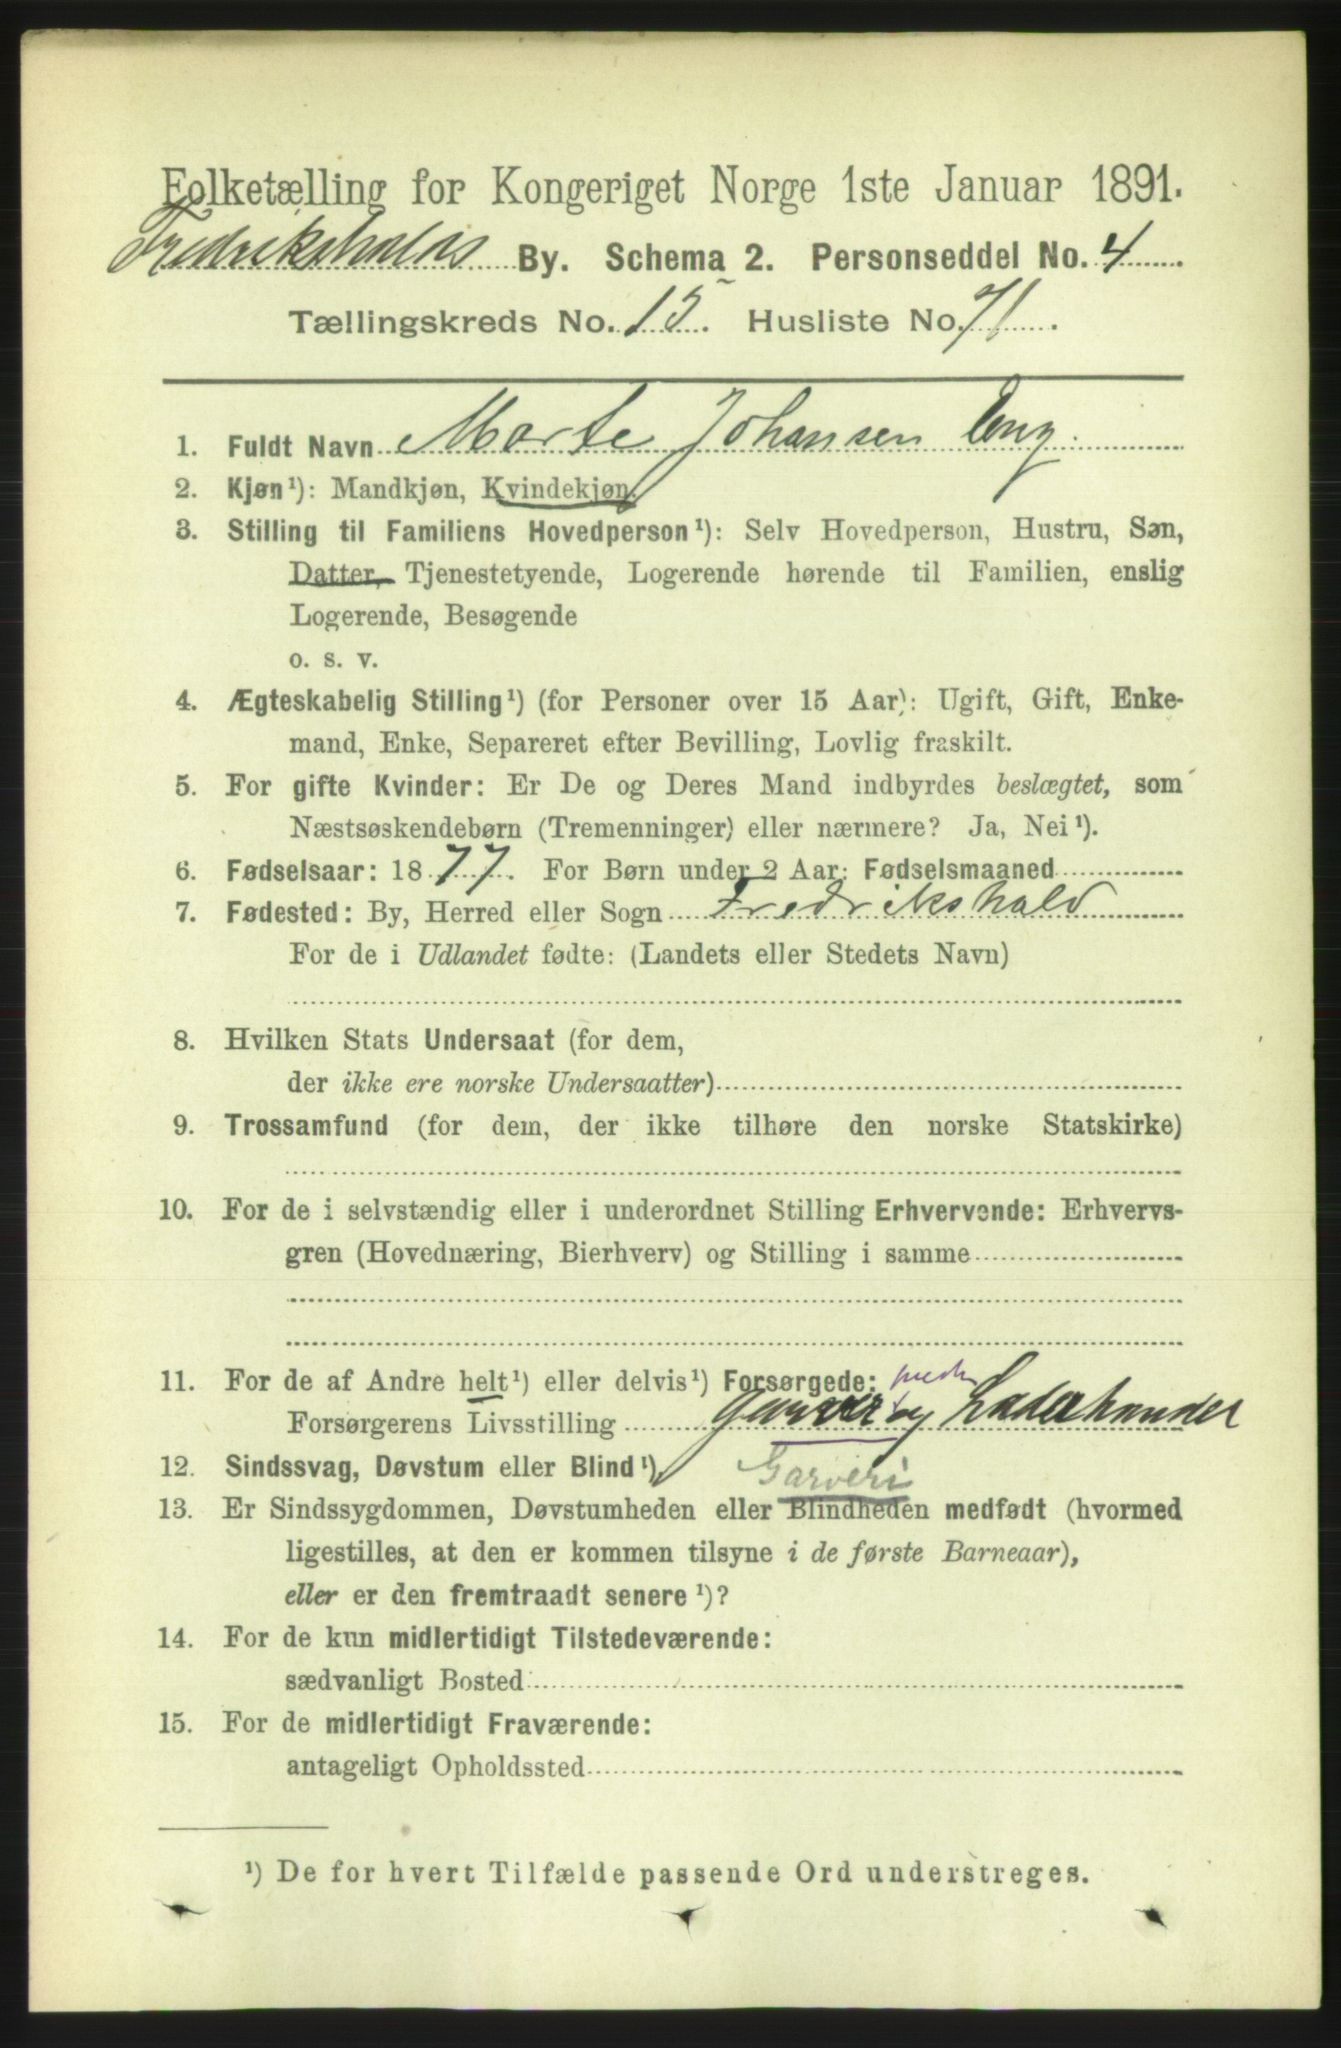 Folketælling for Kongeriget Norge 1ste Januar 1891.
Fredrikshalds By. Schema 2. Personseddel No. 4
Tællingskreds No. 15. Husliste No. 71.
1. Fuldt Navn Marte Johansen Eng.
2. Kjøn¹): Mandkjøn, Kvindekjøn.
3. Stilling til Familiens Hovedperson¹): Selv Hovedperson, Hustru, Søn,
Datter, Tjenestetyende, Logerende hørende til Familien, enslig
Logerende, Besøgende
o. s. v.
4. Ægteskabelig Stilling¹) (for Personer over 15 Aar): Ugift, Gift, Enke-
mand, Enke, Separeret efter Bevilling, Lovlig fraskilt.
5. For gifte Kvinder: Er De og Deres Mand indbyrdes beslægtet, som
Næstsøskendebørn (Tremenninger) eller nærmere? Ja, Nei¹).
6. Fødselsaar: 1877. For Børn under 2 Aar: Fødselsmaaned
7. Fødested: By, Herred eller Sogn Fredrikshald
For de i Udlandet fødte: (Landets eller Stedets Navn)
8. Hvilken Stats Undersaat (for dem,
der ikke ere norske Undersaatter)
9. Trossamfund (for dem, der ikke tilhøre den norske Statskirke)
10. For de i selvstændig eller i underordnet Stilling Erhvervende: Erhvervs-
gren (Hovednæring, Bierhverv) og Stilling i samme
11. For de af Andre helt¹) eller delvis¹) Forsørgede: med
Forsørgerens Livsstilling Garver og Læderhandel
12. Sindssvag, Døvstum eller Blind¹) Garveri
13. Er Sindssygdommen, Døvstumheden eller Blindheden medfødt (hvormed
ligestilles, at den er kommen tilsyne i de første Barneaar),
eller er den fremtraadt senere¹)?
14. For de kun midlertidigt Tilstedeværende:
sædvanligt Bosted
15. For de midlertidigt Fraværende:
antageligt Opholdssted
¹) De for hvert Tilfælde passende Ord understreges.